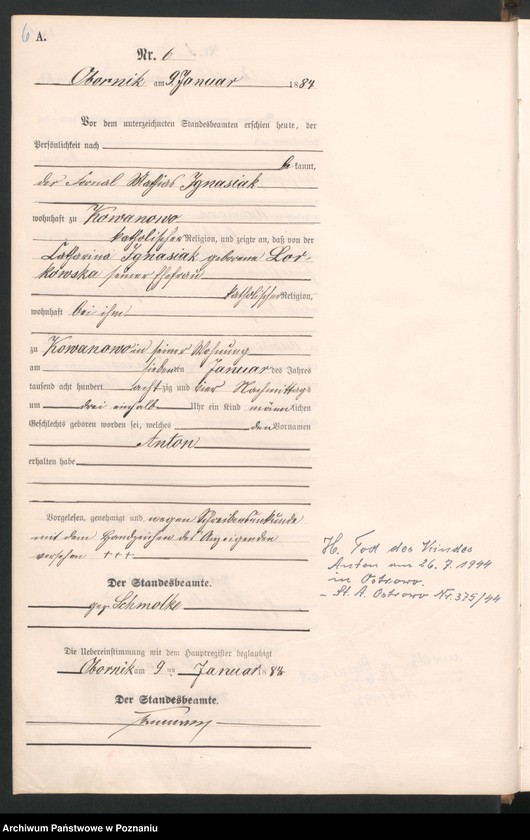 6
A.
Nr. 6
Obornik am 9. Januar 1884
Vor dem unterzeichneten Standesbeamten erschien heute, der
Persönlichkeit nach
be kannt,
der Fornal Mathias Ignasiak
wohnhaft zu Kowanowo
katholischer Religion, und zeigte an, daß von der
Catharina Ignasiak geborene Lor-
kowska seiner Ehefrau
katholischer Religion,
wohnhaft bei ihm
zu Kowanowo in seiner Wohnung
am siebenten Januar des Jahres
tausend acht hundert achtzig und vier Nachmittags
um drei einhalb Uhr ein Kind männlichen
Geschlechts geboren worden sei, welches den Vornamen
Anton
erhalten habe
Vorgelesen, genehmigt und wegen Schreibensunkunde
mit dem Handzeichen des Anzeigenden
versehen +++
Der Standesbeamte.
gez Schmolke
H. Tod des Kindes
Anton am 26.7.1944
in Ostrowo.
– St. A. Ostrowo Nr. 375/44
Die Uebereinstimmung mit dem Hauptregister beglaubigt
Obornik am 9 ten Januar 1884
Der Standesbeamte.
Archiwum Państwowe w Poznaniu